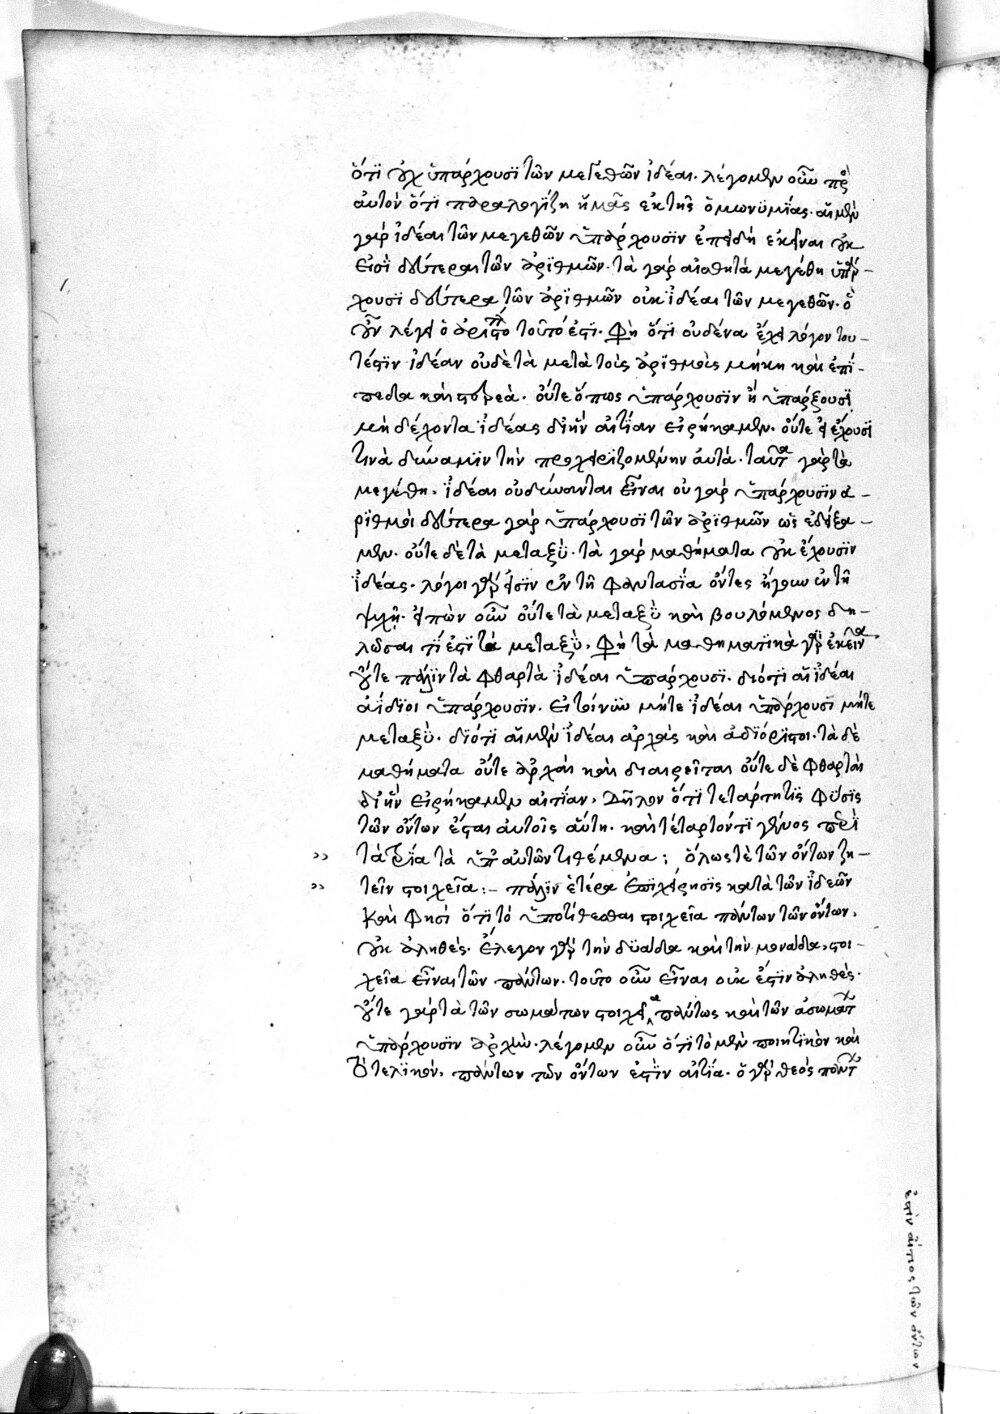 ὅτι οὐχ ὑπάρχουσι τῶν μεγεθῶν ἰδέαι. λέγομεν οὖν πρὸς
αὐτὸν ὅτι παραλογίζη ἡμᾶς ἐκ τῆς ὁμωνυμίας. αἱ μὲν
γὰρ ἰδέαι τῶν μεγεθῶν ὑπάρχουσιν ἐπειδὴ ἐκεῖναι οὐκ
εἰσὶ δεύτεραι τῶν ἀριθμῶν. τὰ γὰρ αἰσθητὰ μεγέθη ὑπάρ-
χουσι δεύτερα τῶν ἀριθμῶν οὐκ ἰδέαι τῶν μεγεθῶν. ὃ
οὖν λέγει ὁ ἀριστο τοῦτό ἐστι. φησὶ ὅτι οὐδένα ἔχει λόγον του-
τέστιν ἰδέαν οὐδὲ τὰ μετὰ τοὺς ἀριθμοὺς μήκη καὶ ἐπί-
πεδα καὶ στερεά. οὔτε ὅπως ὑπάρχουσιν ἢ ὑπάρξουσι
μὴ δέχοντα ἰδέας δι' ἣν αἰτίαν εἰρήκαμεν. οὔτε εἰ ἔχουσί
τινα δύναμιν τὴν προχειριζομένην αὐτά. ταῦτα γὰρ τὰ
μεγέθη. ἰδέαι οὐ δύνανται εἶναι οὐ γὰρ ὑπάρχουσιν ἀ-
ριθμοὶ δεύτερα γὰρ ὑπάρχουσι τῶν ἀριθμῶν ὡς ἐδείξα-
μεν. οὔτε δὲ τὰ μεταξύ. τὰ γὰρ μαθήματα οὐκ ἔχουσιν
ἰδέας. λόγοι γάρ εἰσιν ἐν τῇ φαντασίᾳ ὄντες ἤγουν ἐν τῇ
ψυχῇ. εἰπὼν οὖν οὔτε τὰ μεταξὺ καὶ βουλόμενος δη-
λῶσαι τί ἐστι τὰ μεταξύ, φησὶ τὰ μαθηματικὰ γὰρ ἐκεῖνα
οὔτε πάλιν τὰ φθαρτὰ ἰδέαι ὑπάρχουσι. διότι αἱ ἰδέαι
ἀΐδιοι ὑπάρχουσιν. εἰ τοίνυν μήτε ἰδέαι ὑπάρχουσι μήτε
μεταξύ. διότι αἱ μὲν ἰδέαι ἀρχαὶ καὶ ἀδιόριστοι. τὰ δὲ
μαθήματα οὔτε ἀρχαὶ καὶ διαιρεῖται οὔτε δὲ φθαρταὶ
δι' ἣν εἰρήκαμεν αἰτίαν, δῆλον ὅτι τετάρτη τις φύσις
τῶν ὄντων ἔσται αὐτοῖς αὕτη. καὶ τέταρτόν τι γένος περὶ
›› τὰ τρία τὰ ὑπ' αὐτῶν τιθέμενα; ὅλως τὲ τῶν ὄντων ζη-
›› τεῖν στοιχεῖα:– πάλιν ἑτέρα ἐπιχείρησις κατὰ τῶν ἰδεῶν
καὶ φησὶ ὅτι τὸ ὑποτίθεσθαι στοιχεῖα πάντων τῶν ὄντων,
οὐκ ἀληθές. ἔλεγον γὰρ τὴν δυάδα καὶ τὴν μονάδα, στοι-
χεῖα εἶναι τῶν πάντων. τοῦτο οὖν εἶναι οὐκ ἔστιν ἀληθές.
οὔτε γὰρ τὰ τῶν σωμάτων στοιχεῖα πάντως καὶ τῶν ἀσωμάτ
ὑπάρχουσιν ἀρχαί. λέγομεν οὖν ὅτι τὸ μὲν ποιητικὸν καὶ
τὸ τελικόν, πάντων τῶν ὄντων ἐστὶν αἰτία. ὁ γὰρ θεὸς πάντ
ἐστὶν αἴτιος τῶν ὄντων